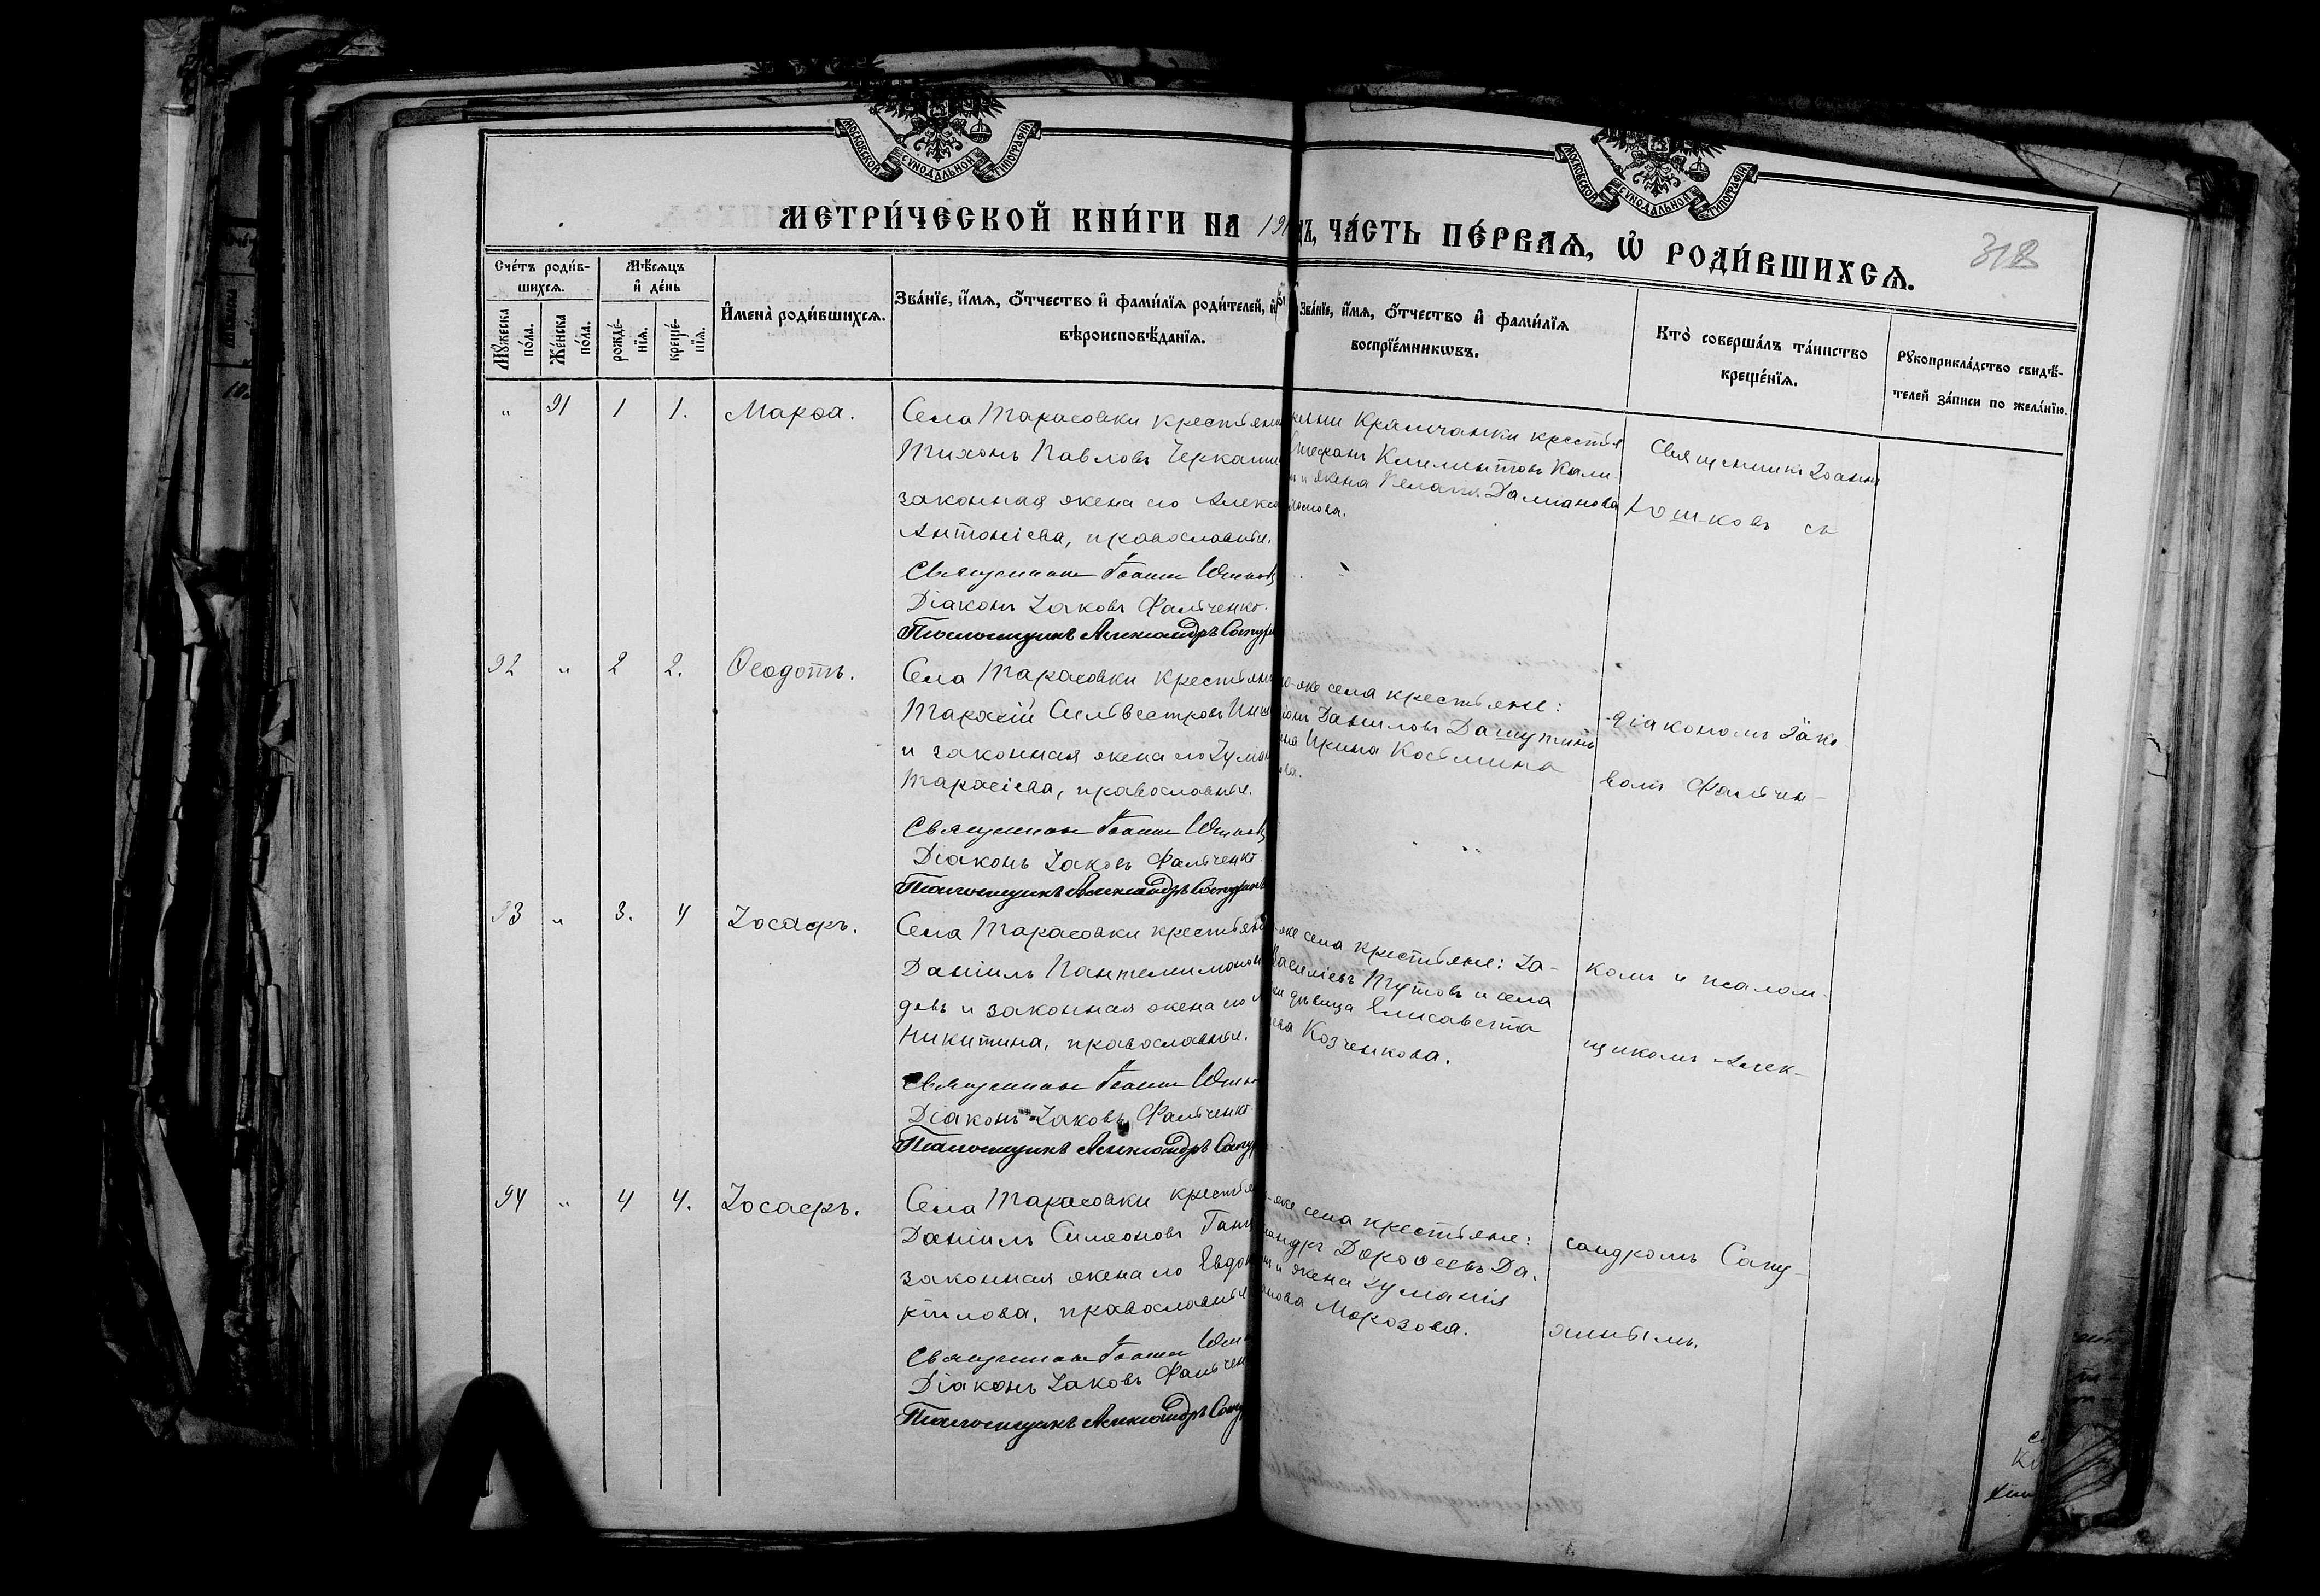 МОСКОВСКОЙ СѴНОДАЛЬНОЙ ТИПОГРАФІИ
МОСКОВСКОЙ СѴНОДАЛЬНОЙ ТИПОГРАФІИ
МЕТРИ́ЧЕСКОЙ КНИ́ГИ НА 19
ЧА́СТЬ ПЕ́РВАѦ, Ѡ҆ РОДИ́ВШИХСѦ.
318
Сче́тъ роди́в-
шихсѧ.
Мꙋ́жеска по́ла.
Же́нска по́ла.
Мѣ́сѧцъ и҆ де́нь
рожде́-нїѧ.
креще́-нїѧ.
И҆мена̀ роди́вшихсѧ.
Зва́нїе, и҆́мѧ, ѻ҆́тчество и҆ фами́лїѧ роди́телей, и҆
вѣроисповѣ́данїѧ.
Зва́нїе, и҆́мѧ, ѻ҆́тчество и҆ фами́лїѧ
воспрїе́мникѡвъ.
Кто̀ соверша́лъ та́инство
креще́нїѧ.
Рꙋкоприкла́дство свидѣ́-
телей за́писи по жела́нїю.
" 91 1 1. Марѳа.
Села Тарасовки крестьянин
Тихонъ Павловъ Черкаши
законная жена его Алекса
Антоніева, православные.
Священникъ Іоаннъ Юшковъ
Діаконъ Іаковъ Фальченко.
Псаломщикъ Александръ Сапу
Крамчанки крестья
Стефанъ Климентовъ Кали
и жена Пелагія Даміанова
Священникъ Іоаннъ
Юшковъ съ
92 " 2 2. Ѳеодотъ.
Села Тарасовки крестьян
Тарасій Сильвестровъ
и законная жена его Іуліан
Тарасіева, православные.
Священникъ Іоаннъ Юшковъ
Діаконъ Іаковъ Фальченко.
Псаломщикъ Александръ Сапу
же села крестьяне:
Даниловъ Дашутинъ
Ирина Косьмина
діакономъ Іако
вомъ Фальчен-
93 " 3. 4 Іосафъ.
Села Тарасовки крестьян
Даніилъ Пантелеимонов
девъ и законная жена его
Никитина, православные.
Священникъ Іоаннъ Юшк
Діаконъ Іаковъ Фальченко.
Псаломщикъ Александръ Сапу
же села крестьяне: Іа-
Василіевъ Тутовъ и села
дѣвица Елисавета
Козченкова.
комъ и псалом-
щикомъ Алек-
94 " 4 4. Іосафъ.
Села Тарасовки крестья
Даніилъ Симеоновъ
законная жена его Евдок
рилова, православные
Священникъ Іоаннъ Юш
Діаконъ Іаковъ Фальчен
Псаломщикъ Александръ Сапу
же села крестьяне:
андръ Дороѳеевъ Да-
и жена Іуманія
нова Морозова.
сандромъ Сапу-
хинымъ.